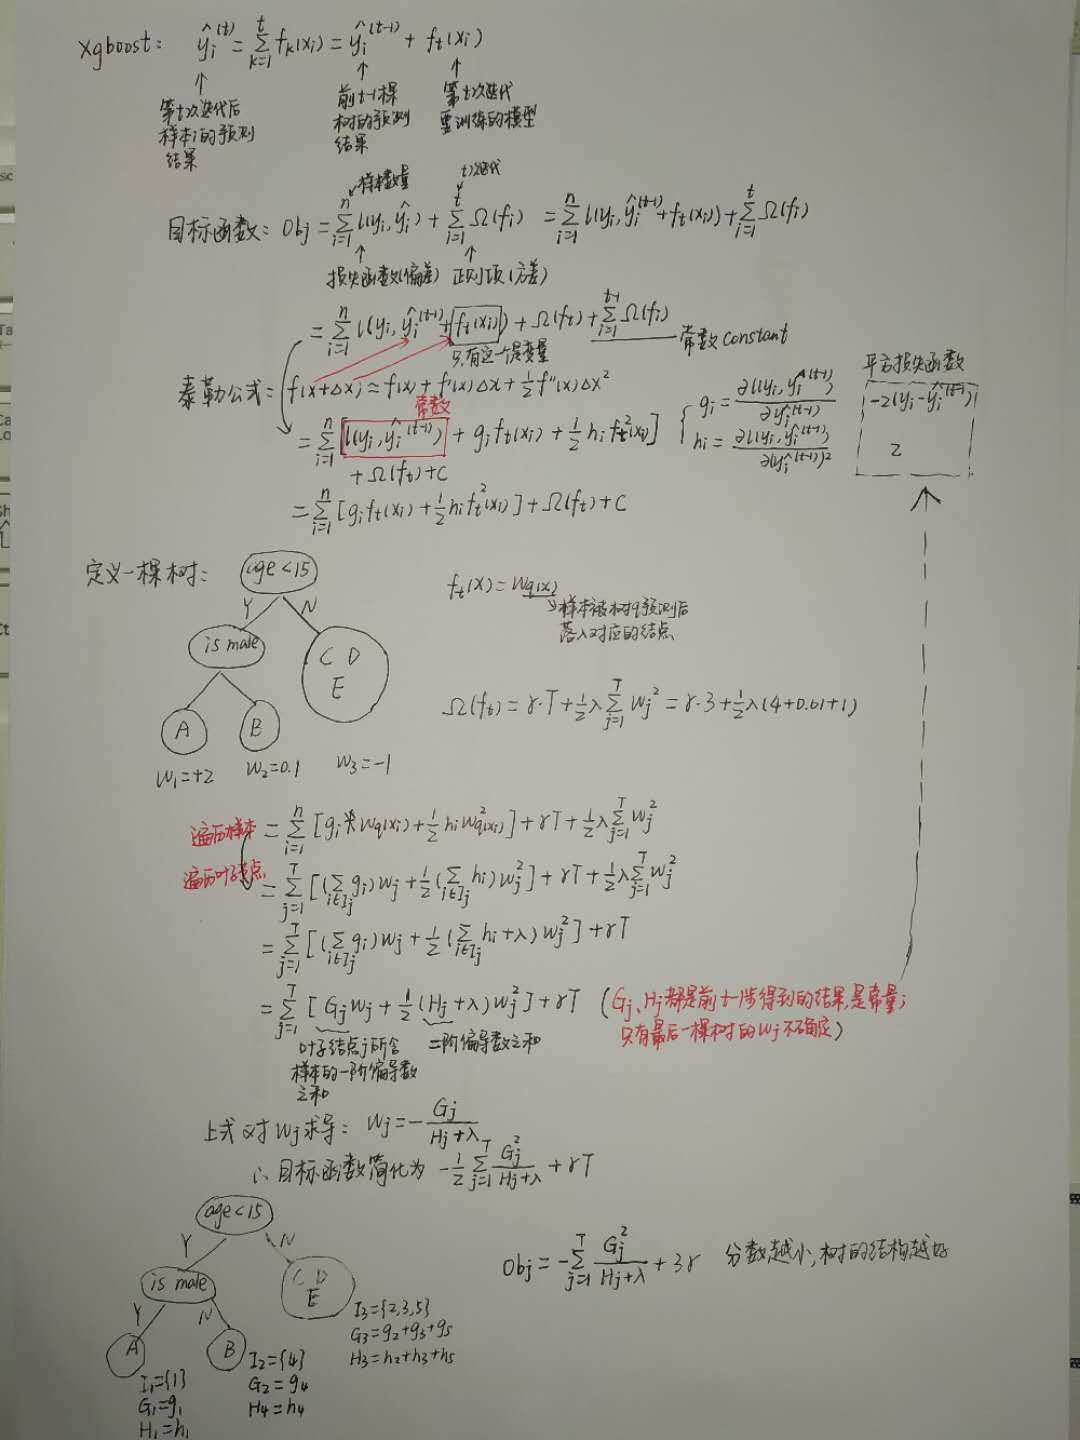 xgboost: ŷᵢ⁽ᵗ⁾ = Σₖ₌₁ᵗ fₖ(xᵢ) = ŷᵢ⁽ᵗ⁻¹⁾ + fₜ(xᵢ)
第t次迭代后样本i的预测结果
前t-1棵树的预测结果
第t次迭代要训练的模型
样本数量
t次迭代
目标函数: Obj = Σᵢ₌₁ⁿ l(yᵢ, ŷᵢ) + Σᵢ₌₁ᵗ Ω(fᵢ) = Σᵢ₌₁ⁿ l(yᵢ, ŷᵢ⁽ᵗ⁻¹⁾ + fₜ(xᵢ)) + Σᵢ₌₁ᵗ Ω(fᵢ)
损失函数(偏差) 正则项(方差)
= Σᵢ₌₁ⁿ l(yᵢ, ŷᵢ⁽ᵗ⁻¹⁾ + fₜ(xᵢ)) + Ω(fₜ) + Σᵢ₌₁ᵗ⁻¹ Ω(fᵢ)
只有这一个是变量
常数 constant
泰勒公式: f(x+Δx) ≈ f(x) + f'(x)Δx + ½f''(x)Δx²
常数
= Σᵢ₌₁ⁿ [l(yᵢ, ŷᵢ⁽ᵗ⁻¹⁾) + gᵢfₜ(xᵢ) + ½hᵢfₜ²(xᵢ)]
+ Ω(fₜ) + C
gᵢ = ∂l(yᵢ, ŷᵢ⁽ᵗ⁻¹⁾) / ∂ŷᵢ⁽ᵗ⁻¹⁾
hᵢ = ∂l(yᵢ, ŷᵢ⁽ᵗ⁻¹⁾) / ∂(ŷᵢ⁽ᵗ⁻¹⁾)²
平方损失函数
-2(yᵢ - ŷᵢ⁽ᵗ⁻¹⁾)
2
= Σᵢ₌₁ⁿ [gᵢfₜ(xᵢ) + ½hᵢfₜ²(xᵢ)] + Ω(fₜ) + C
定义一棵树:
age<15
Y N
is male
C D
E
A B
W₁=+2 W₂=0.1 W₃=-1
fₜ(x) = W_q(x)
样本被树q预测后
落入对应的结点
Ω(fₜ) = γ·T + ½λ Σⱼ₌₁ᵀ Wⱼ² = γ·3 + ½λ(4+0.01+1)
遍历样本 = Σᵢ₌₁ⁿ [gᵢ * W_q(xᵢ) + ½hᵢW²_q(xᵢ)] + γT + ½λ Σⱼ₌₁ᵀ Wⱼ²
遍历叶子结点 = Σⱼ₌₁ᵀ [(Σ_{i∈Iⱼ} gᵢ)Wⱼ + ½(Σ_{i∈Iⱼ} hᵢ)Wⱼ²] + γT + ½λ Σⱼ₌₁ᵀ Wⱼ²
= Σⱼ₌₁ᵀ [(Σ_{i∈Iⱼ} gᵢ)Wⱼ + ½(Σ_{i∈Iⱼ} hᵢ + λ)Wⱼ²] + γT
= Σⱼ₌₁ᵀ [GⱼWⱼ + ½(Hⱼ + λ)Wⱼ²] + γT
(Gⱼ、Hⱼ都是前t-1步得到的结果,是常量;
只有最后一棵树的Wⱼ不确定)
叶子结点j所含
样本的一阶偏导数
之和
二阶偏导数之和
上式对Wⱼ求导: Wⱼ = -Gⱼ/(Hⱼ+λ)
∴目标函数简化为 -½ Σⱼ₌₁ᵀ Gⱼ²/(Hⱼ+λ) + γT
age<15
Y N
is male
C D
E
Y N
A B
I₃={2,3,5}
G₃=g₂+g₃+g₅
H₃=h₂+h₃+h₅
I₂={4}
G₂=g₄
H₄=h₄
I₁={1}
G₁=g₁
H₁=h₁
Obj = -Σⱼ₌₁ᵀ Gⱼ²/(Hⱼ+λ) + 3γ 分数越小,树的结构越好